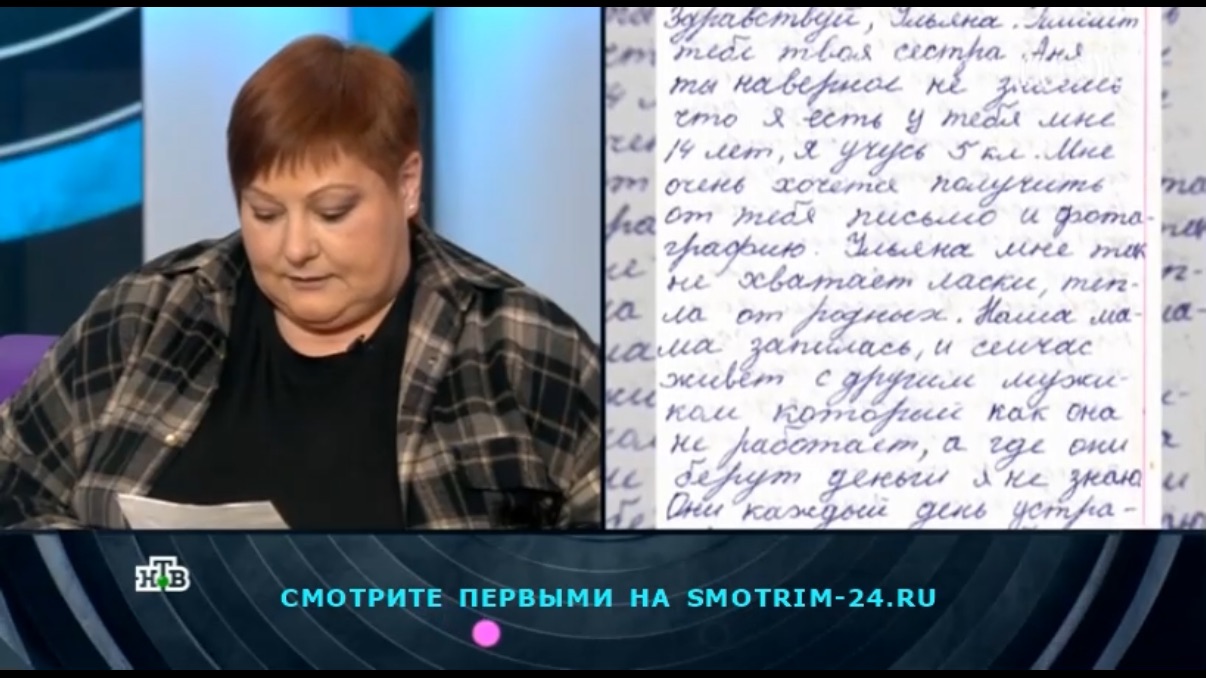 Здравствуй, Ульяна. Пишит
тебе твоя сестра Аня
ты наверное не знаешь
что я есть у тебя мне
14 лет, я учусь 5 кл. Мне
очень хочется получить
от тебя письмо и фото-
графию. Ульяна мне так
не хватает ласки, теп-
ла от родных. Наша ма-
ма запилась, и сейчас
живёт с другим мужи-
ком который как она
не работает, а где они
берут деньги я не знаю
Они каждый день устра-
НТВ
СМОТРИТЕ ПЕРВЫМИ НА SMOTRIM-24.RU